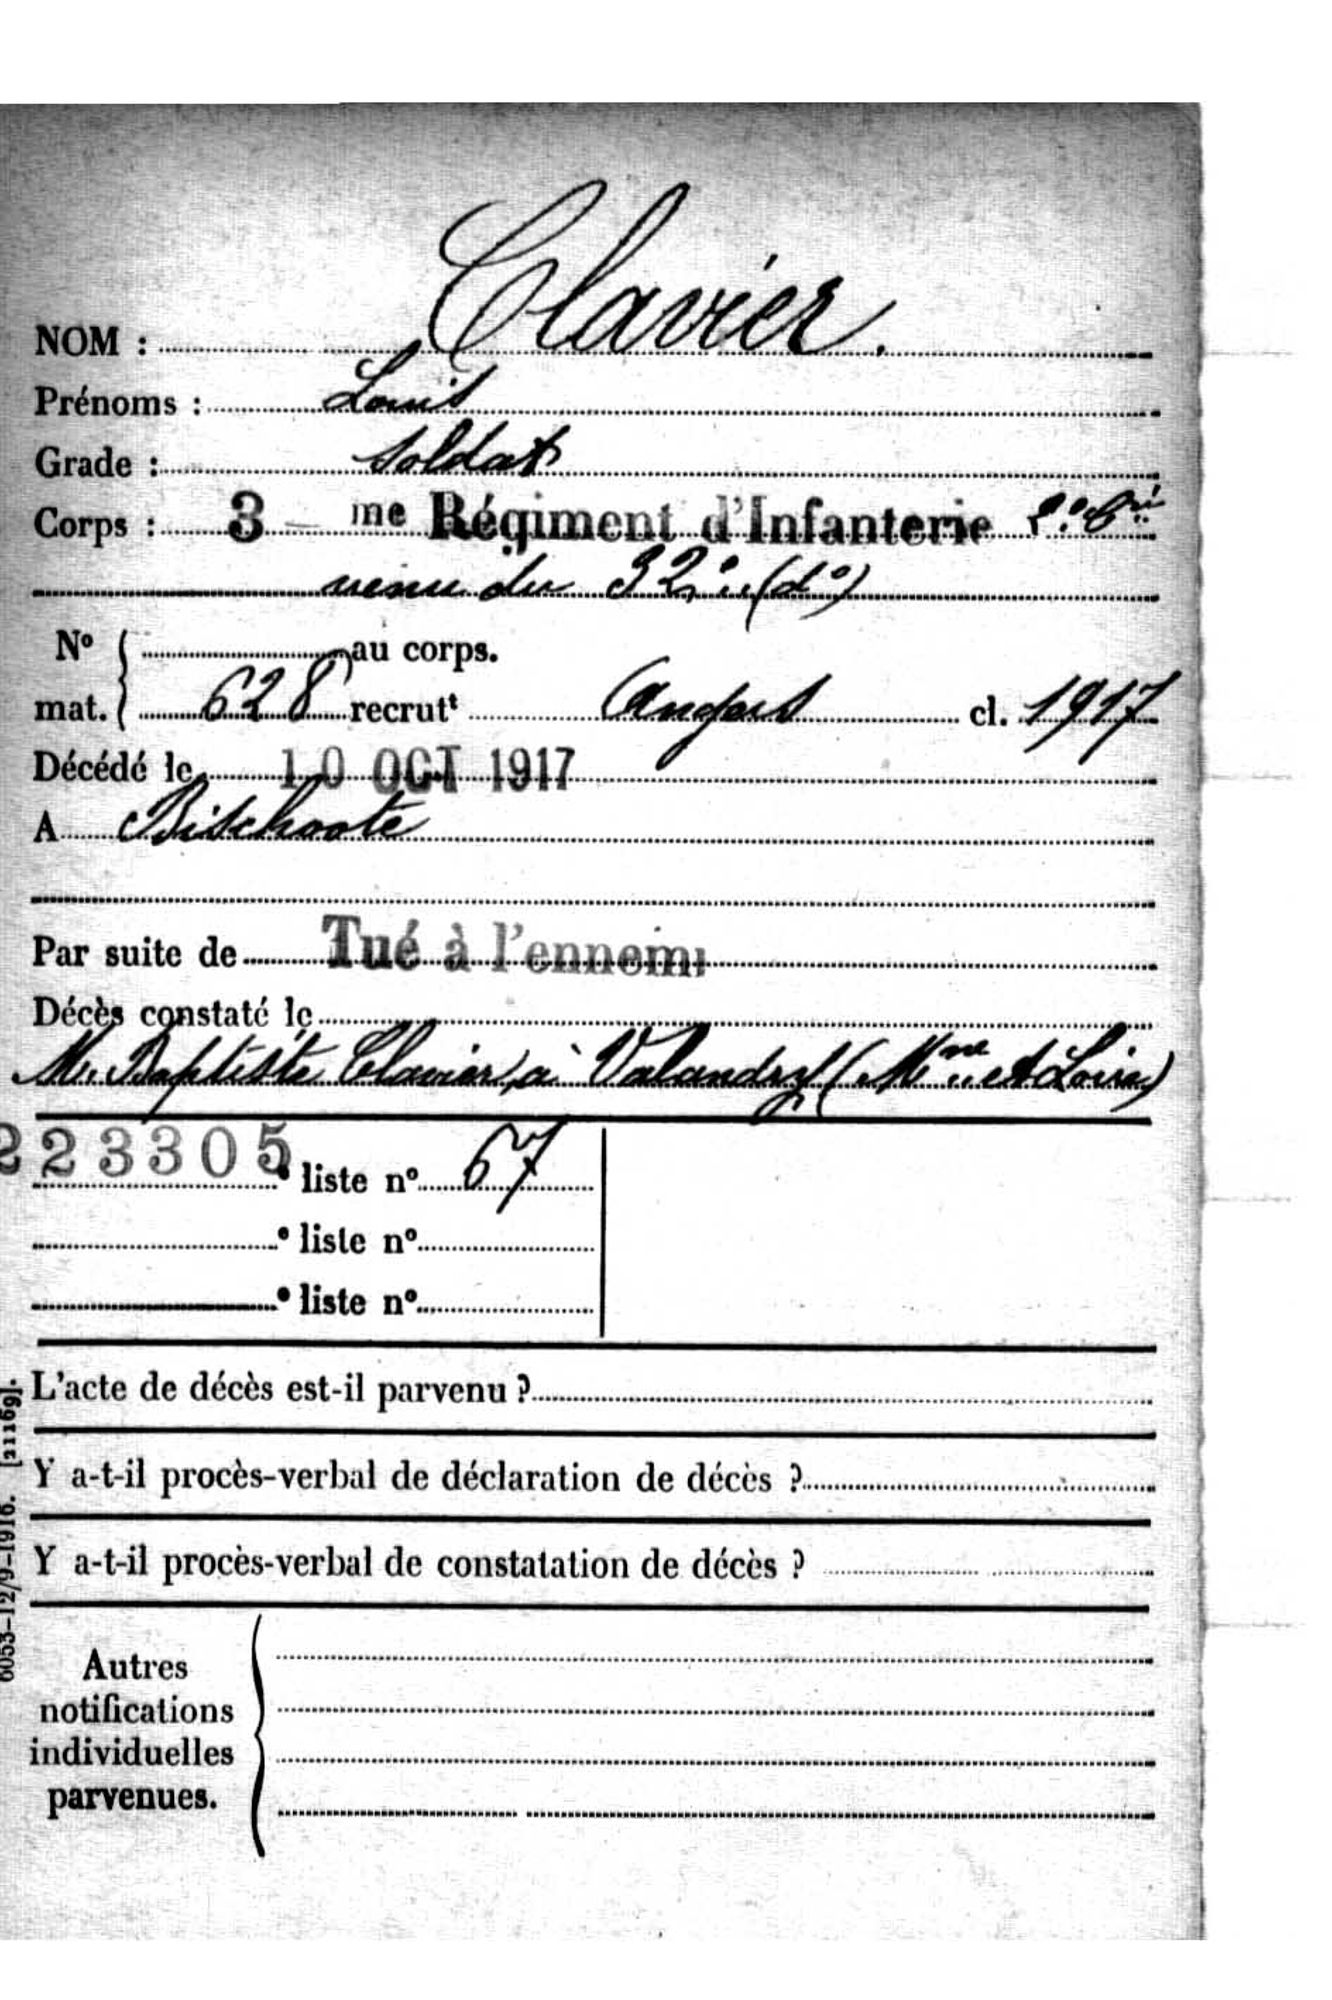 NOM : Clavier.
Prénoms : Louis
Grade : Soldat
Corps : 3 me Régiment d'Infanterie
venu du 32e (do)
No au corps.
mat. 628 recrutt Angers cl. 1917
Décédé le 10 OCT 1917
A Bitchoote
Par suite de Tué à l'ennemi
Décès constaté le
M. Baptiste Clavier, à Valandry (Mne et Loire)
223305 • liste no 67
• liste no
• liste no
L'acte de décès est-il parvenu ?
Y a-t-il procès-verbal de déclaration de décès ?
Y a-t-il procès-verbal de constatation de décès ?
Autres
notifications
individuelles
parvenues.
6053-12/9-1916. [21169].